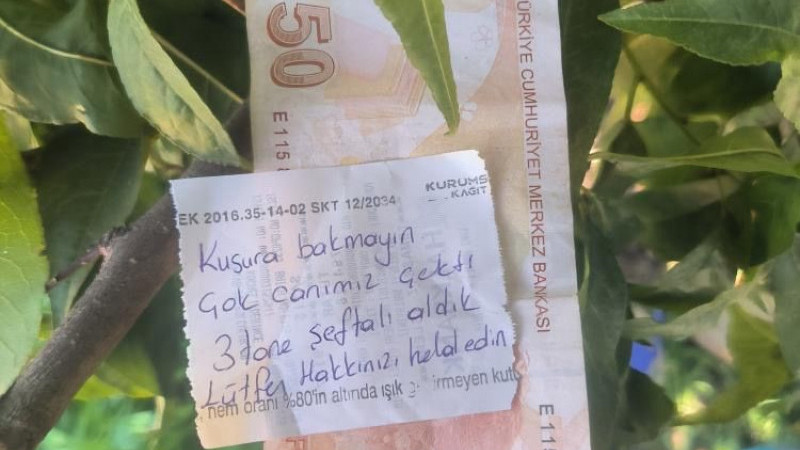 50
TÜRKİYE CUMHURİYET MERKEZ BANKASI
E 115
KURUMS
KAĞIT
EK 2016.35-14-02 SKT 12/2034
Kusura bakmayın
Çok canımız çekti
3 tane şeftali aldık
Lütfen Hakkınızı helal edin
nem oranı %80'in altında ışık irmeyen kutu
E 115